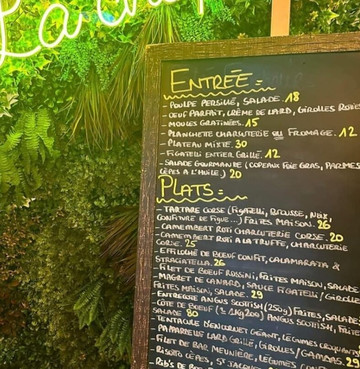 La
ENTRÉE
- POULPE PERSILLÉ, SALADE. 18
- OEUF PARFAIT, CRÈME DE LARD, GIROLLES
- MOULES GRATINÉES. 15
- PLANCHETTE CHARCUTERIE OU FROMAGE. 12
- PLATEAU MIXTE. 30
- FIGATELLI ENTIER GRILLÉ. 12
- SALADE GOURMANDE (COPEAUX FOIE GRAS, PARMES
CÈPES À L'HUILE) 20
PLATS
- TARTARE CORSE (FIGATELLI, NOIX,
CONFITURE DE FIGUE...) FRITES MAISON. 26
- CAMEMBERT ROTI CHARCUTERIE CORSE. 20
- CAMEMBERT ROTI À LA TRUFFE, CHARCUTERIE
CORSE. 25
- EFFILOCHÉ DE BOEUF CONFIT, CALAMARATA &
STRACIATELLA. 26
- FILET DE BOEUF ROSSINI, FRITES MAISON, SALADE
- MAGRET DE CANARD, SAUCE FIGATELLI / GIROLLE
FRITES MAISON, SALADE. 29
- ENTRECOTE ANGUS SCOTTISH (250g) FRITES, SALADE
- CÔTE DE BOEUF (± 1kg200) ANGUS SCOTTISH, FRITES
SALADE 80
- TENTACULE D'ENCORNET GÉANT, LÉGUMES CROQUANTS
- PAPPARDELLE LARD GRILLÉ, GIROLLES / GAMBAS. 29
- FILET DE BAR MEUNIÈRE, LÉGUMES
- RISOTTO CÈPES, ST JACQUES
- RIB'S DE